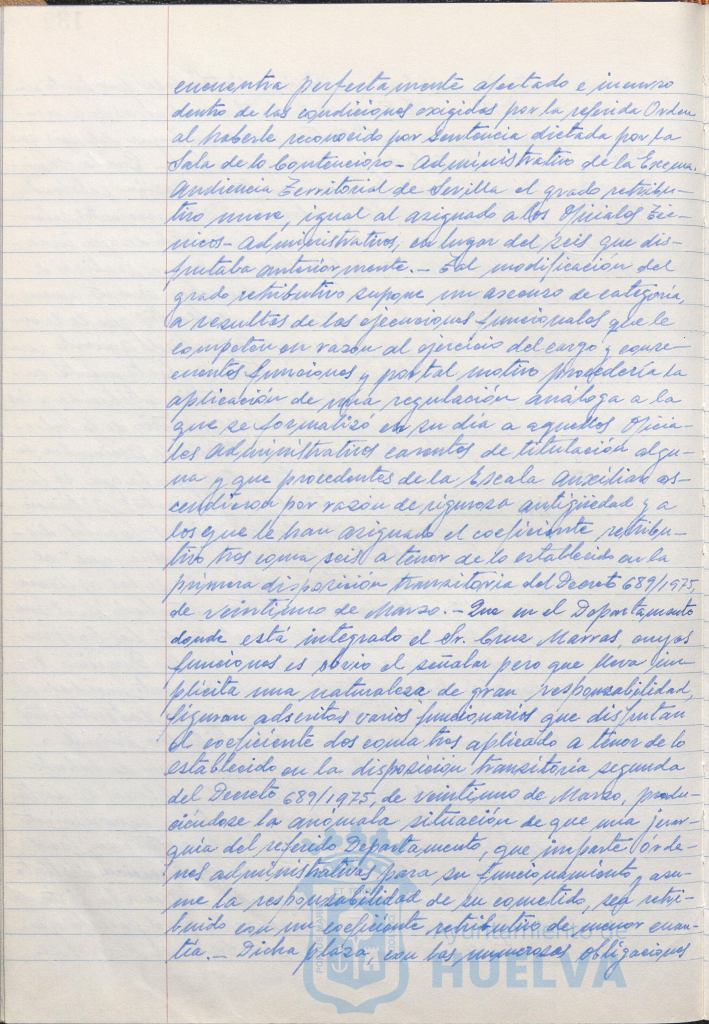 encuentra perfectamente afectado e incurso
dentro de las condiciones exigidas por la referida Orden
al haberle reconocido por sentencia dictada por la
Sala de lo Contencioso-Administrativo de la Excma.
Audiencia Territorial de Sevilla el grado retribu-
tivo nueve, igual al asignado a los Oficiales Téc-
nicos-Administrativos, en lugar del seis que dis-
frutaba anteriormente.- Tal modificación del
grado retributivo supone un ascenso de categoría,
a resultas de las ejecuciones funcionales que le
competen en razón al ejercicio del cargo y
funciones y por tal motivo procedería la
aplicación de una regulación análoga a la
que se formalizó en su día a aquellos Oficia-
les Administrativos carentes de titulación algu-
na y que procedentes de la Escala Auxiliar as-
cendieron por razón de rigurosa antigüedad y a
los que le han asignado el coeficiente retribu-
tivo tres coma seis a tenor de lo establecido en la
primera disposición transitoria del Decreto 689/1975,
de veintiuno de Marzo.- Que en el Departamento
donde está integrado el Sr. Cruz Marras, cuyas
funciones es obvio el señalar pero que lleva im-
plícita una naturaleza de gran responsabilidad,
figuran adscritos varios funcionarios que disfrutan
el coeficiente dos coma tres aplicado a tenor de lo
establecido en la disposición transitoria segunda
del Decreto 689/1975, de veintiuno de Marzo, produ-
ciéndose la anómala situación de que una jerar-
quía del referido Departamento, que imparte órde-
nes administrativas para su funcionamiento y asu-
me la responsabilidad de su cometido, sea retri-
buido con un coeficiente retributivo de menor cuan-
tía.- Dicha plaza, con las numerosas obligaciones
Ayuntamiento
HUELVA